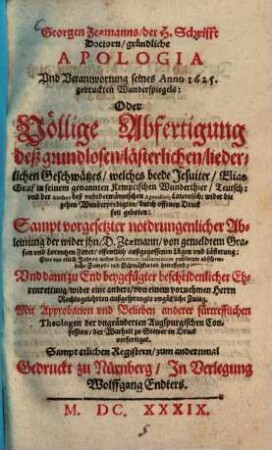 Georgen Zeæmanns/der H. Schrifft
Doctorn/gründliche
APOLOGIA
Vnd Verantwortung seines Anno 1625.
gedruckten Wunderspiegels:
Oder
Völlige Abfertigung
deß grundlosen/lästerlichen/lieder-
lichen Geschwätzes/welches beede Jesuiter/Elias
Graf/in seinem genannten Kemptischen Wunderthier/Teutsch:
vnd der Lateinisch: wider die
zehen Wunderpredigten/durch offenen Druck
feil geboten:
Sampt vorgesetzter notdrungenlicher Ab-
leinung der wider ihn/D. Zeæmann/von gemeldtem Gra-
fen vnd Lorentzen Forer/offentlich außgegossenen Lügen vnd Lästerung:
Vnd dann zu End beygefügter bescheidenlicher Eh-
renrettung/wider eine andere/von einem vermeinten
Rechtsgelehrten außgesprengte vngütliche Zulag.
Mit Approbation vnd Belieben anderer fürtrefflichen
Theologen der vngeänderten Augspurgischen Con-
fession/der Warheit zu Stewer in Druck
verfertiget.
Sampt etlichen Registern/zum andernmal
Gedruckt zu Nürnberg/In Verlegung
Wolffgang Endters.
M. DC. XXXIX.